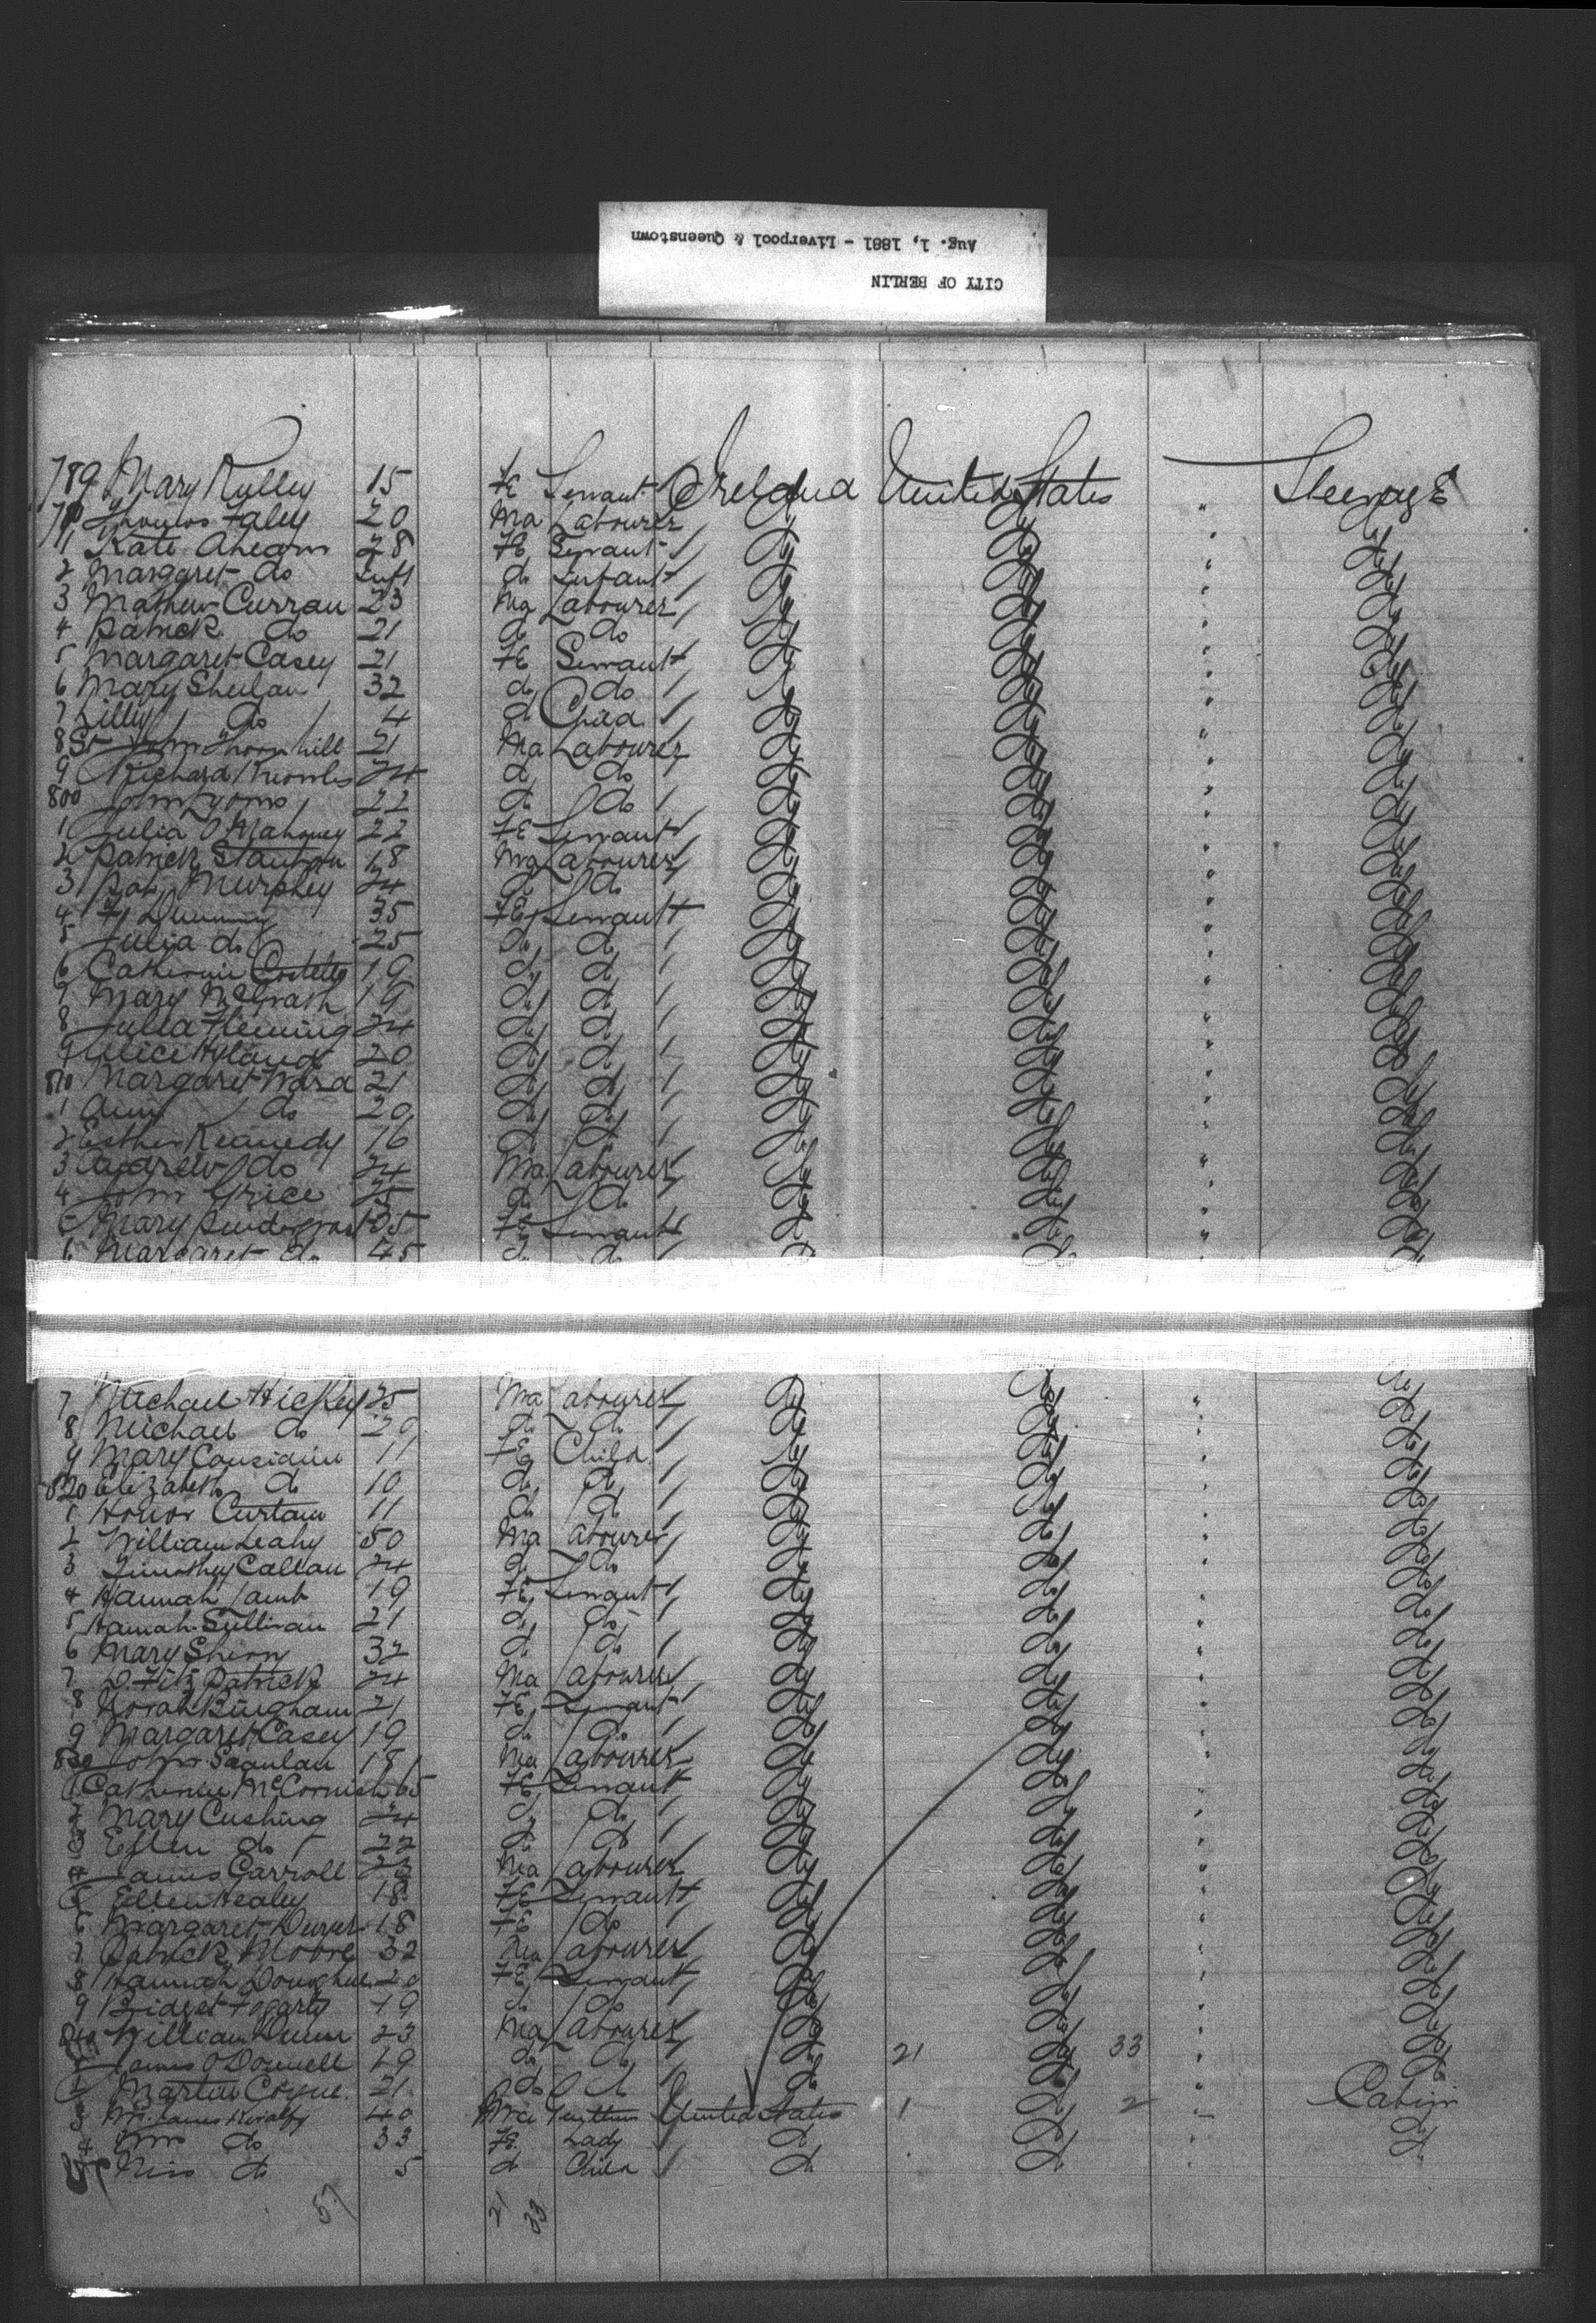 CITY OF BERLIN
Aug. 1, 1881 - Liverpool & Queenstown
789 Mary 15 FE Servant Ireland United States Steerage
790 Thomas Faley 20 Ma Labourer do do " do
1 Kate Ahearn 28 FE Servant do do " do
2 Margaret do Inft do Infant do do " do
3 Mathew Curran 23 Ma Labourer do do " do
4 Patrick do 21 do do do do " do
5 Margaret Casey 21 FE Servant do do " do
6 Mary 32 do do do do " do
7 Lilly do 4 do Child do do " do
8 St John Thornhill 21 Ma Labourer do do " do
9 Richard 24 do do do do " do
800 John Lyons 22 do do do do " do
1 Julia O'Mahoney 22 FE Servant do do " do
2 Patrick Staunton 18 Ma Labourer do do " do
3 Pat Murphy 24 do do do do " do
4 35 FE Servant do do " do
5 Julia do 25 do do do do " do
6 Catherine Costello 19 do do do do " do
7 Mary McGrath 19 do do do do " do
8 Julia Fleming 24 do do do do " do
9 Alice Hyland 20 do do do do " do
810 Margaret Ward 21 do do do do " do
1 Ann do 20 do do do do " do
2 Esther Kennedy 16 do do do do " do
3 Andrew do 24 Ma Labourer do do " do
4 John Grice 25 do do do do " do
5 Mary FE Servant do do " do
6 Margaret do 45 do do do do do
7 Michael Hickey 25 Ma Labourer do do " do
8 Michael do 20 do do do do " do
9 Mary Considine 11 FE Child do do " do
820 Elizabeth do 10 do do do do " do
1 Honor Curtain 11 do do do do " do
2 William Leahy 50 Ma Labourer do do " do
3 Timothy Callan 24 do do do do " do
4 Hannah Lamb 19 FE Servant do do " do
5 Hannah Sullivan 21 do do do do " do
6 Mary 32 do do do do " do
7 D. Fitz Patrick 24 Ma Labourer do do " do
8 Norah Bingham 21 FE Servant do do " do
9 Margaret Casey 19 do do do do " do
830 John Scanlan 18 Ma Labourer do do " do
1 Catherine 65 FE Servant do do " do
2 Mary Cushing 24 do do do do " do
3 Ellen do 22 do do do do " do
4 James Carroll 23 Ma Labourer do do " do
5 Ellen Healey 18 FE Servant do do " do
6 Margaret 18 FE do do do " do
7 Patrick Moore 32 Ma Labourer do do " do
8 Hannah 20 FE Servant do do " do
9 Bridget Fogarty 19 do do do do " do
840 William 23 Ma Labourer do do " do
1 James O'Donnell 19 do do do 21 do 33 " do
2 Martin Coyne 21 do do do do "
3 Mr. James 40 Ma United States 1 do 2 Cabin
4 Mrs do 33 FE Lady do do " do
5 Miss do 5 do Child do do " do
57 21 33